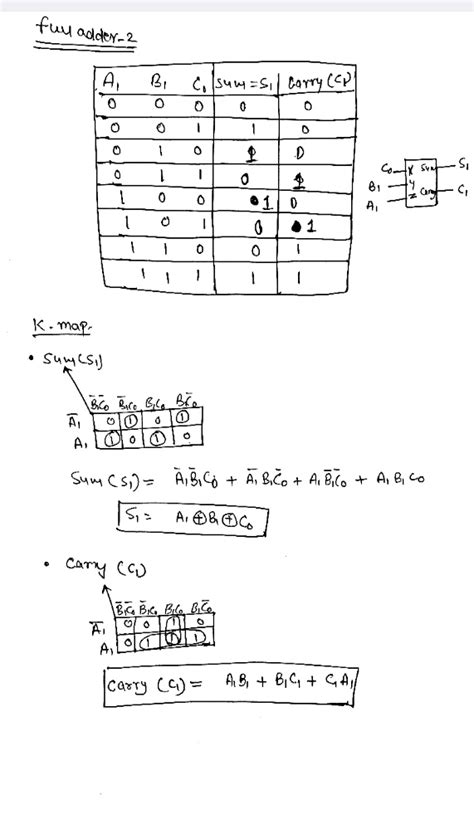 full adder-2
A₁ B₁ C₀ Sum=S₁ Carry(C₁)
0 0 0 0 0
0 0 1 1 0
0 1 0 1 0
0 1 1 0 1
1 0 0 1 0
1 0 1 0 1
1 1 0 0 1
1 1 1 1 1
C₀ X Sum S₁
B₁ Y
A₁ Z Carry C₁
K-map.
• Sum(S₁)
B̅₁C̅₀ B̅₁C₀ B₁C₀ B₁C̅₀
A̅₁ 0 1 0 1
A₁ 1 0 1 0
Sum(S₁) = A̅₁B̅₁C₀ + A̅₁B₁C̅₀ + A₁B̅₁C̅₀ + A₁B₁C₀
S₁ = A₁⊕B₁⊕C₀
• Carry (C₁)
B̅₁C̅₀ B̅₁C₀ B₁C₀ B₁C̅₀
A̅₁ 0 0 1 0
A₁ 0 1 1 1
Carry (C₁) = A₁B₁ + B₁C₁ + C₁A₁